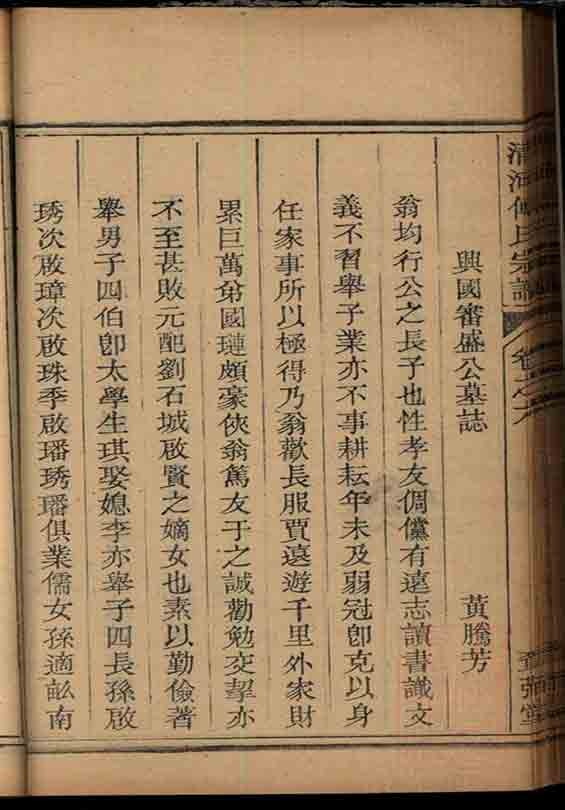 清河傅氏宗譜 卷之六
興國審盛公墓誌 黃騰芳
翁均行公之長子也性孝友倜儻有遠志讀書識文
義不習舉子業亦不事耕耘年未及弱冠卽克以身
任家事所以極得乃翁歡長服賈遠遊千里外家財
累巨萬弟國璉頗豪俠翁篤友于之誠勸勉交挈亦
不至甚敗元配劉石城啟賢之嫡女也素以勤儉著
舉男子四伯卽太學生琪娶媳李亦舉子四長孫啟
琇次啟璋次啟珠季啟璠琇璠俱業儒女孫適畝南